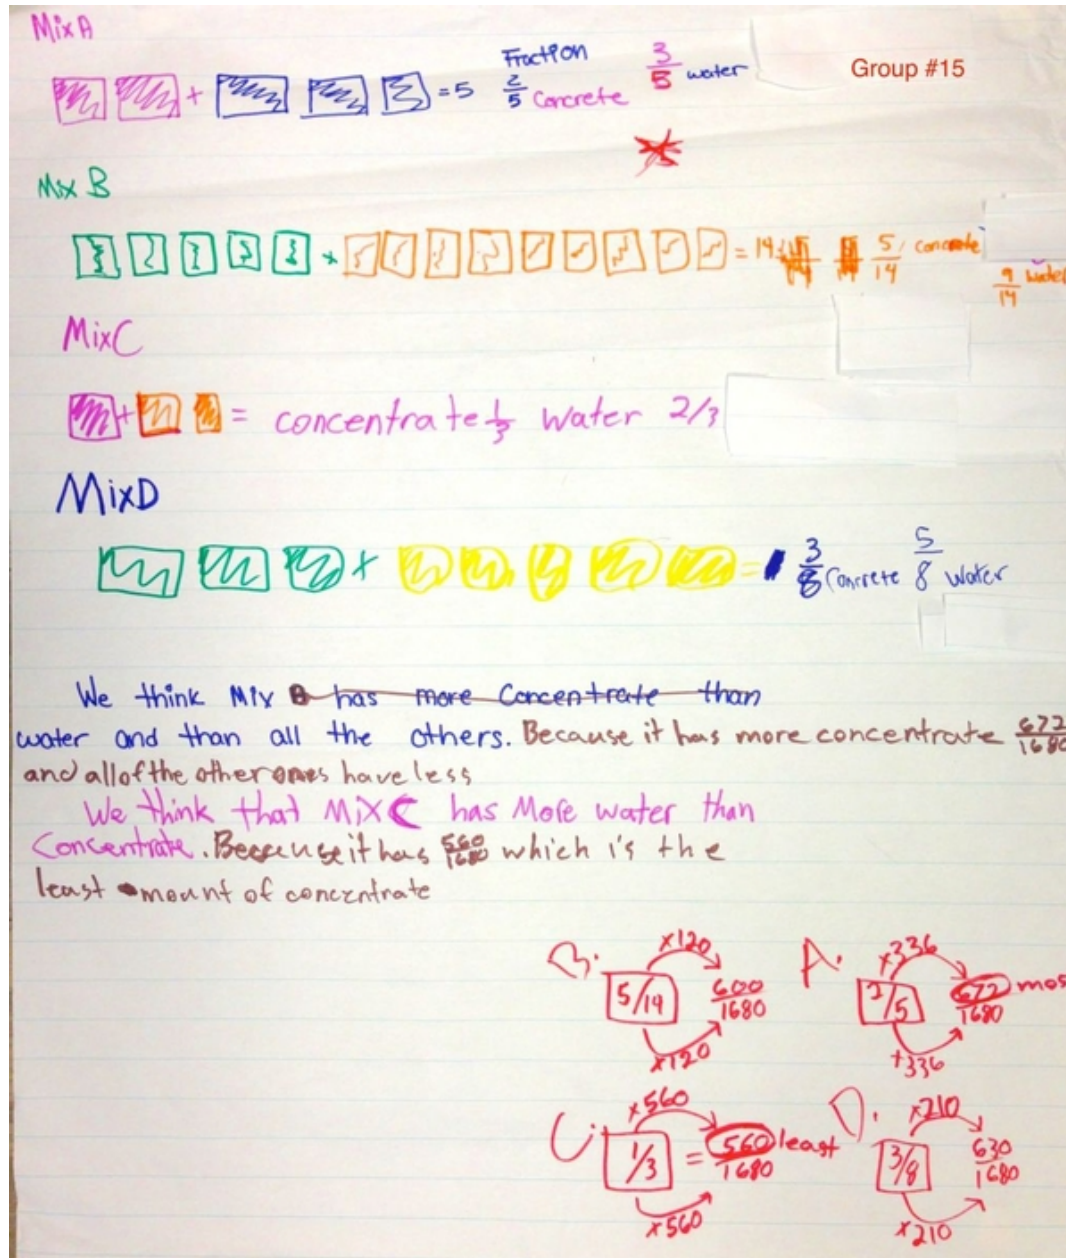 Mix A
Group #15
+ = 5 Fraction 2/5 Concrete 3/5 water
Mix B
+ = 14 5/14 concrete 9/14 water
Mix C
+ = concentrate 1/3 water 2/3
Mix D
+ = 3/8 Concrete 5/8 water
We think Mix has more Concentrate than
water and than all the others. Because it has more concentrate 672/1680
and all of the other ones have less
We think that Mix C has More water than
Concentrate. Because it has 560/1680 which is the
least amount of concentrate
B. x120
5/14 600/1680
x120
A. x336
2/5 672/1680 mos
+336
C. x560
1/3 = 560/1680 least
x560
D. x210
3/8 630/1680
x210